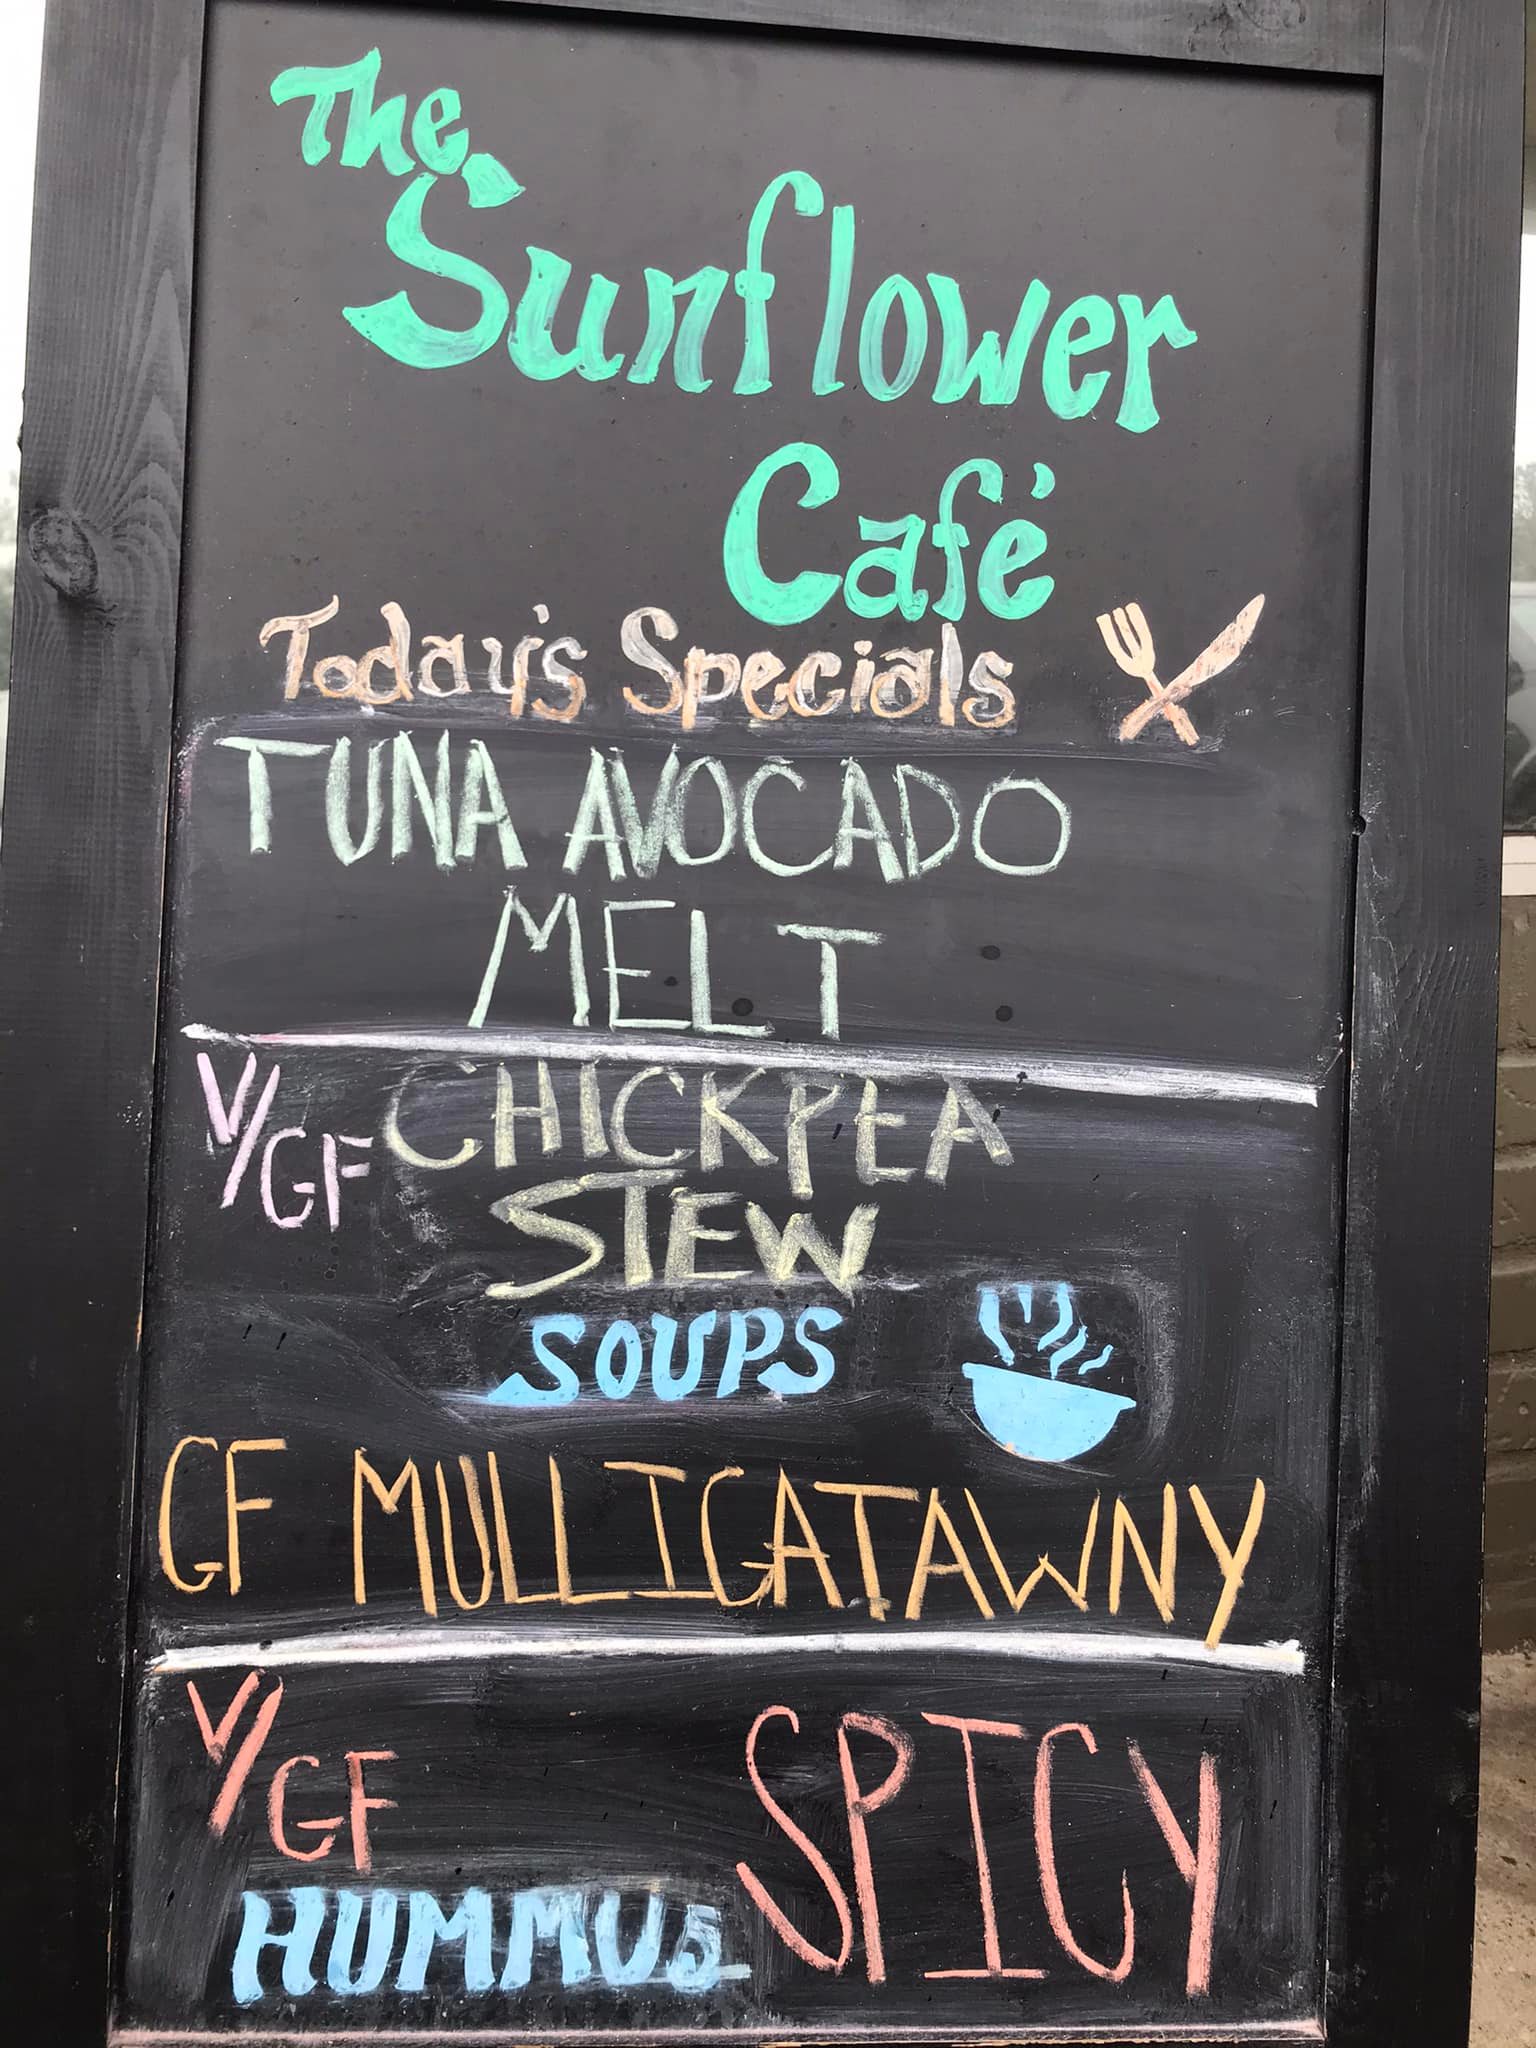 The
Sunflower
Café
Today's Specials
TUNA AVOCADO
MELT
V/GF CHICKPEA
STEW
SOUPS
GF MULLIGATAWNY
V/GF
HUMMUS SPICY